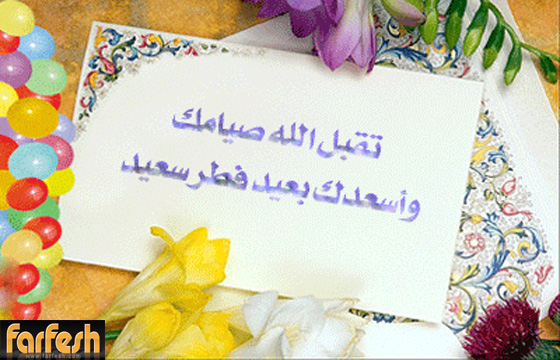 تقبل الله صيامك
وأسعدك بعيد فطر سعيد
farfesh
www.farfesh.com